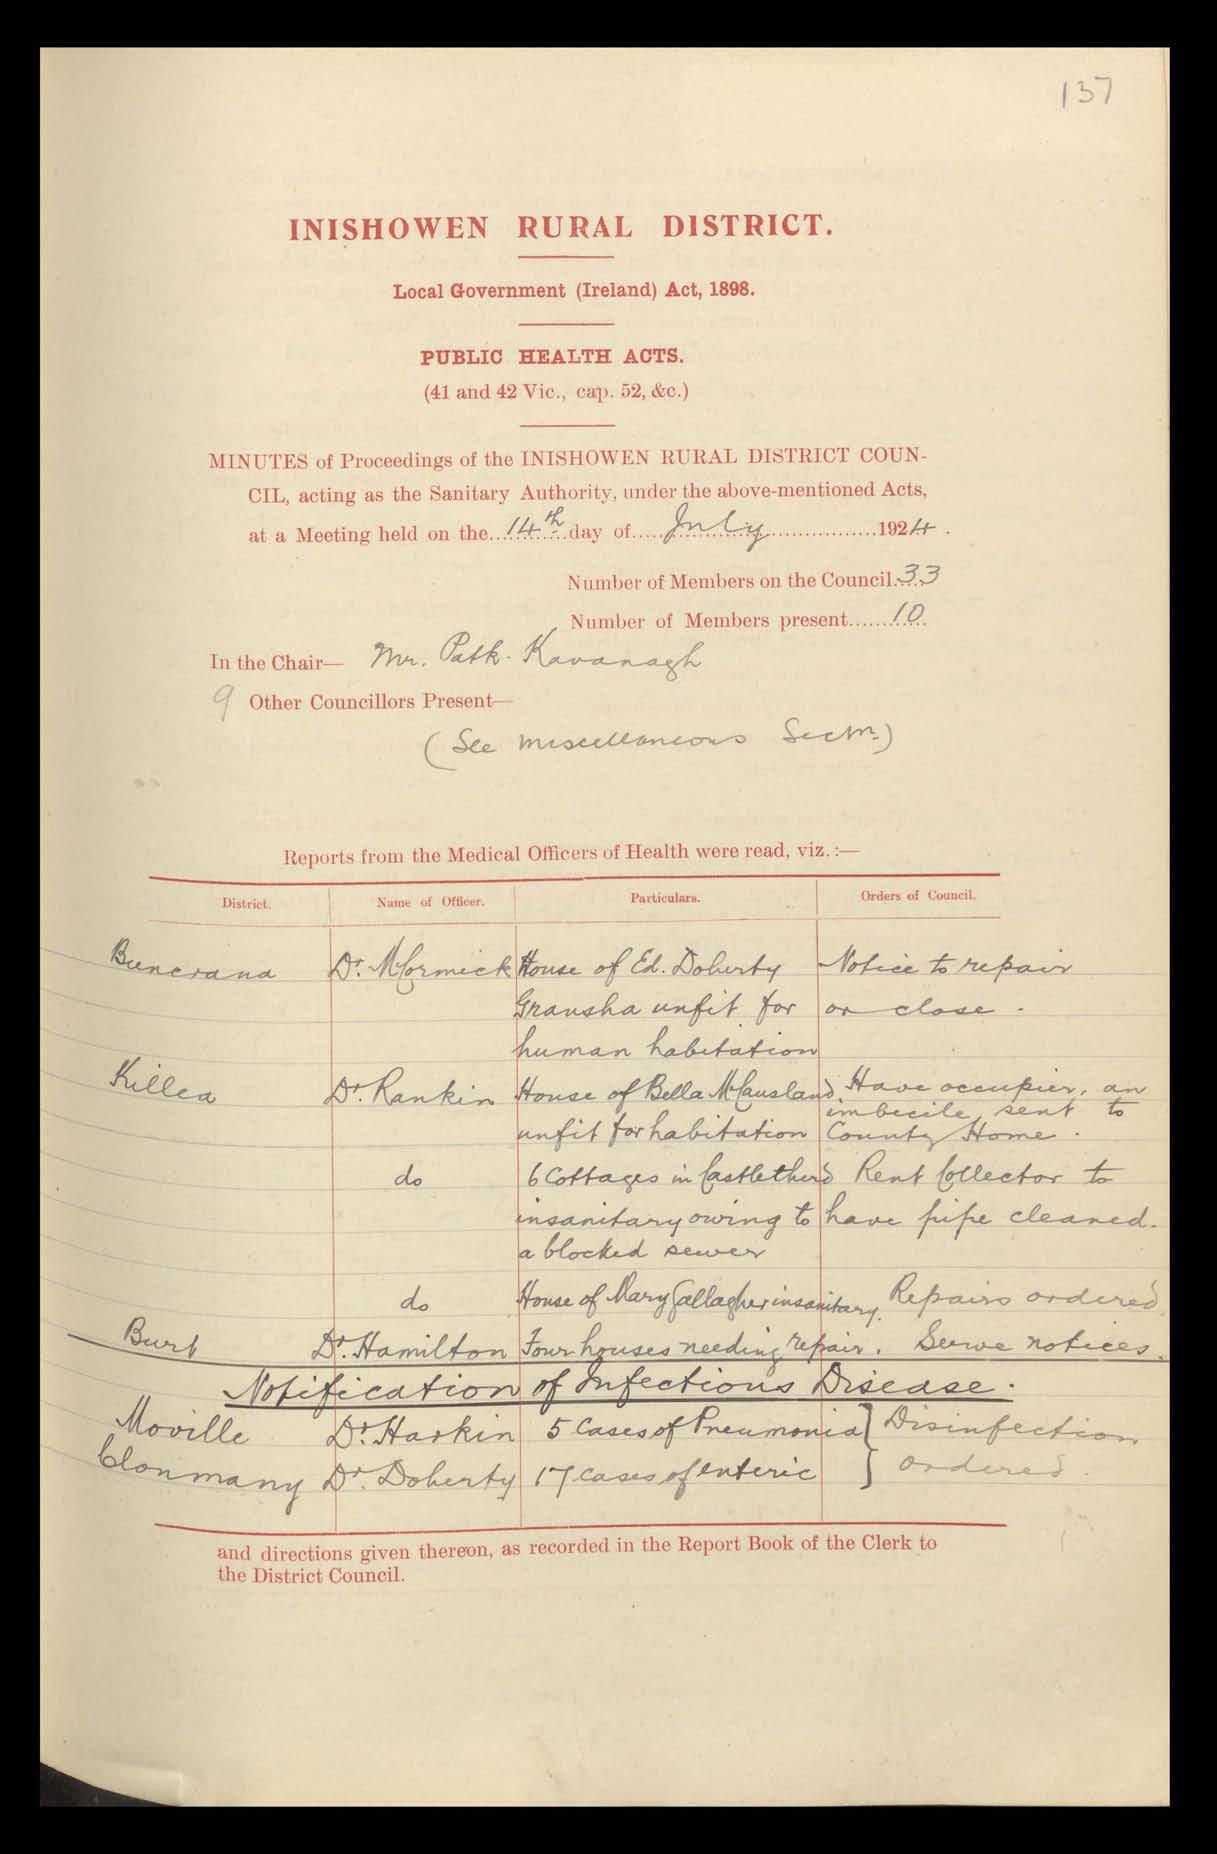 137
INISHOWEN RURAL DISTRICT.
Local Government (Ireland) Act, 1898.
PUBLIC HEALTH ACTS.
(41 and 42 Vic., cap. 52, &c.)
MINUTES of Proceedings of the INISHOWEN RURAL DISTRICT COUN-
CIL, acting as the Sanitary Authority, under the above-mentioned Acts,
at a Meeting held on the 14th day of July 1924.
Number of Members on the Council 33
Number of Members present 10
In the Chair— Mr. Patk. Kavanagh
9 Other Councillors Present—
(See miscellaneous Sectn.)
Reports from the Medical Officers of Health were read, viz. :—
District. Name of Officer. Particulars. Orders of Council.
Buncrana Dr. McCormick House of Ed. Doherty Notice to repair
Gransha unfit for or close.
human habitation
Killea Dr. Rankin House of Bella McCausland Have occupier, an
imbecile sent to
unfit for habitation County Home.
do 6 Cottages in Castlethird Rent Collector to
insanitary owing to have pipe cleaned.
a blocked sewer
do House of Mary Gallagher insanitary. Repairs ordered
Burt Dr. Hamilton Four houses needing repair. Serve notices.
Notification of Infectious Disease.
Moville Dr. Harkin 5 Cases of Pneumonia } Disinfection
Clonmany Dr. Doherty 17 cases of enteric } ordered.
and directions given thereon, as recorded in the Report Book of the Clerk to
the District Council.